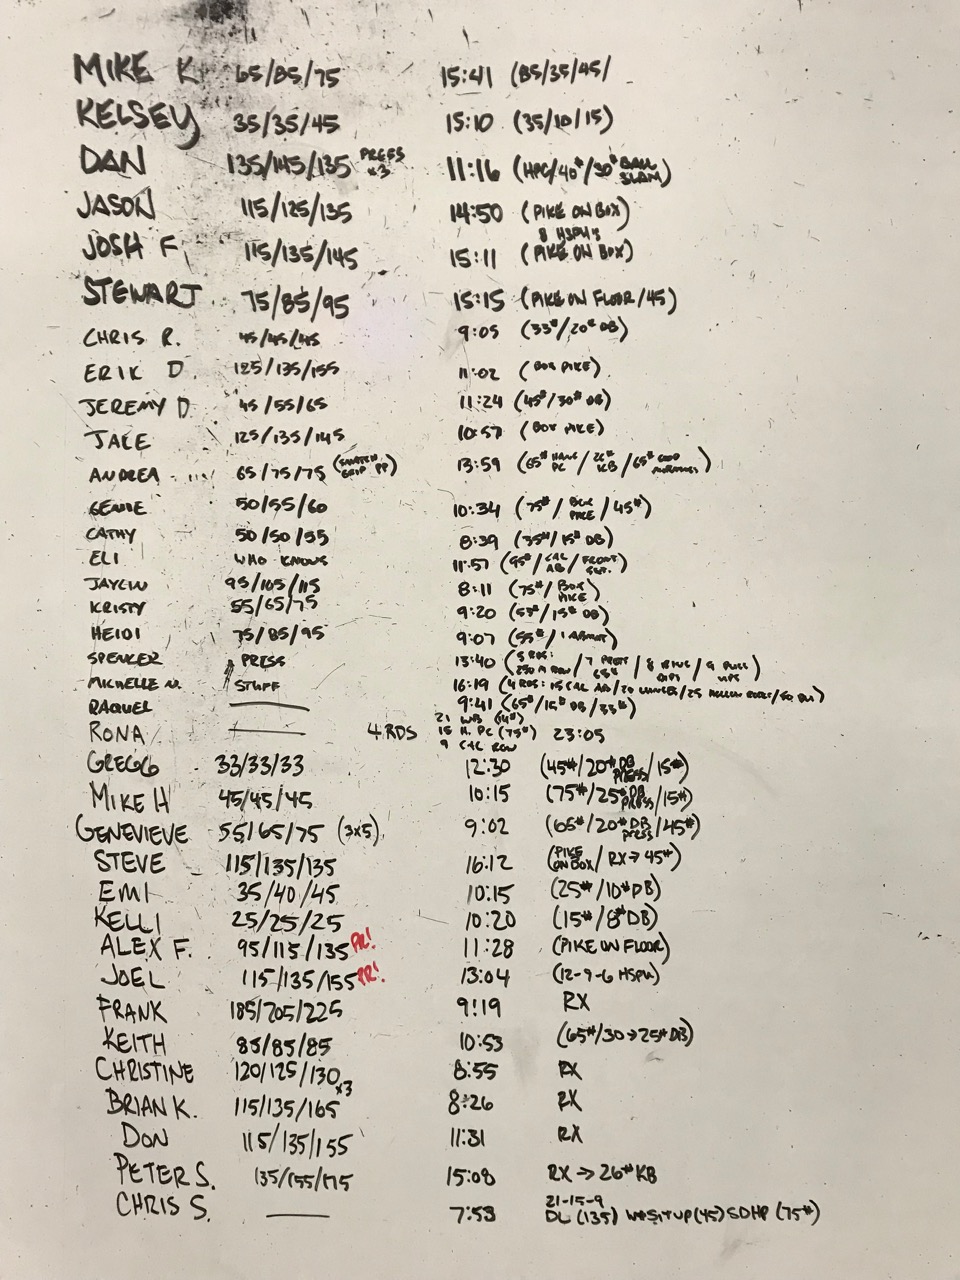 MIKE K 65/85/75 15:41 (85/35/45/
KELSEY 35/35/45 15:10 (35/10/15)
DAN 135/145/135 PRESS x3 11:16 (HPC/40#/30# BALL SLAM)
JASON 115/125/135 14:50 (PIKE ON BOX)
8 HSPU'S
JOSH F. 115/135/145 15:11 (PIKE ON BOX)
STEWART 75/85/95 15:15 (PIKE ON FLOOR/45)
CHRIS R. 45/45/45 9:05 (33#/20# DB)
ERIK D. 125/135/155 11:02 (BOX PIKE)
JEREMY D 45/55/65 11:24 (45#/30# DB)
JAKE 125/135/145 10:57 (BOX PIKE)
ANDREA 65/75/75 (SNATCH GRIP PP) 13:59 (65# HANG PC/26# KB/65# GOOD MORNINGS)
GENIE 50/55/60 10:34 (75#/BOX PIKE/45#)
CATHY 50/50/55 8:39 (35#/15# DB)
ELI WHO KNOWS 11:57 (95#/CAL AB/FRONT SQT.)
JAYLIN 95/105/115 8:11 (75#/BOX PIKE)
KRISTY 55/65/75 9:20 (53#/15# DB)
HEIDI 75/85/95 9:07 (55#/1 ABMAT)
SPENCER PRESS 13:40 (5 RDS: 250 M ROW/7 PRESS/8 RING DIPS/9 PULL UPS)
MICHELLE N. STUFF 16:19 (4 RDS: 15 CAL AB/20 LUNGES/25 HOLLOW ROCKS/50 DU)
RAQUEL 9:41 (65#/15# DB/33#)
RONA 4 RDS 21 WB (14#)
15 H. PC (75#) 23:05
9 CAL ROW
GREGG 33/33/33 12:30 (45#/20# DB PRESS/15#)
MIKE H 45/45/45 10:15 (75#/25# DB PRESS/15#)
GENEVIEVE 55/65/75 (3x5) 9:02 (65#/20# DB PRESS/45#)
STEVE 115/135/135 16:12 (PIKE ON BOX/RX→45#)
EMI 35/40/45 10:15 (25#/10# DB)
KELLI 25/25/25 10:20 (15#/8# DB)
ALEX F. 95/115/135 PR! 11:28 (PIKE ON FLOOR)
JOEL 115/135/155 PR! 13:04 (12-9-6 HSPU)
FRANK 185/205/225 9:19 RX
KEITH 85/85/85 10:53 (65#/30→25# DB)
CHRISTINE 120/125/130 x3 8:55 RX
BRIAN K. 115/135/165 8:26 RX
DON 115/135/155 11:31 RX
PETER S. 135/155/175 15:08 RX → 26# KB
CHRIS S. 7:53 21-15-9
DL (135) W+SITUP (45) SDHP (75#)